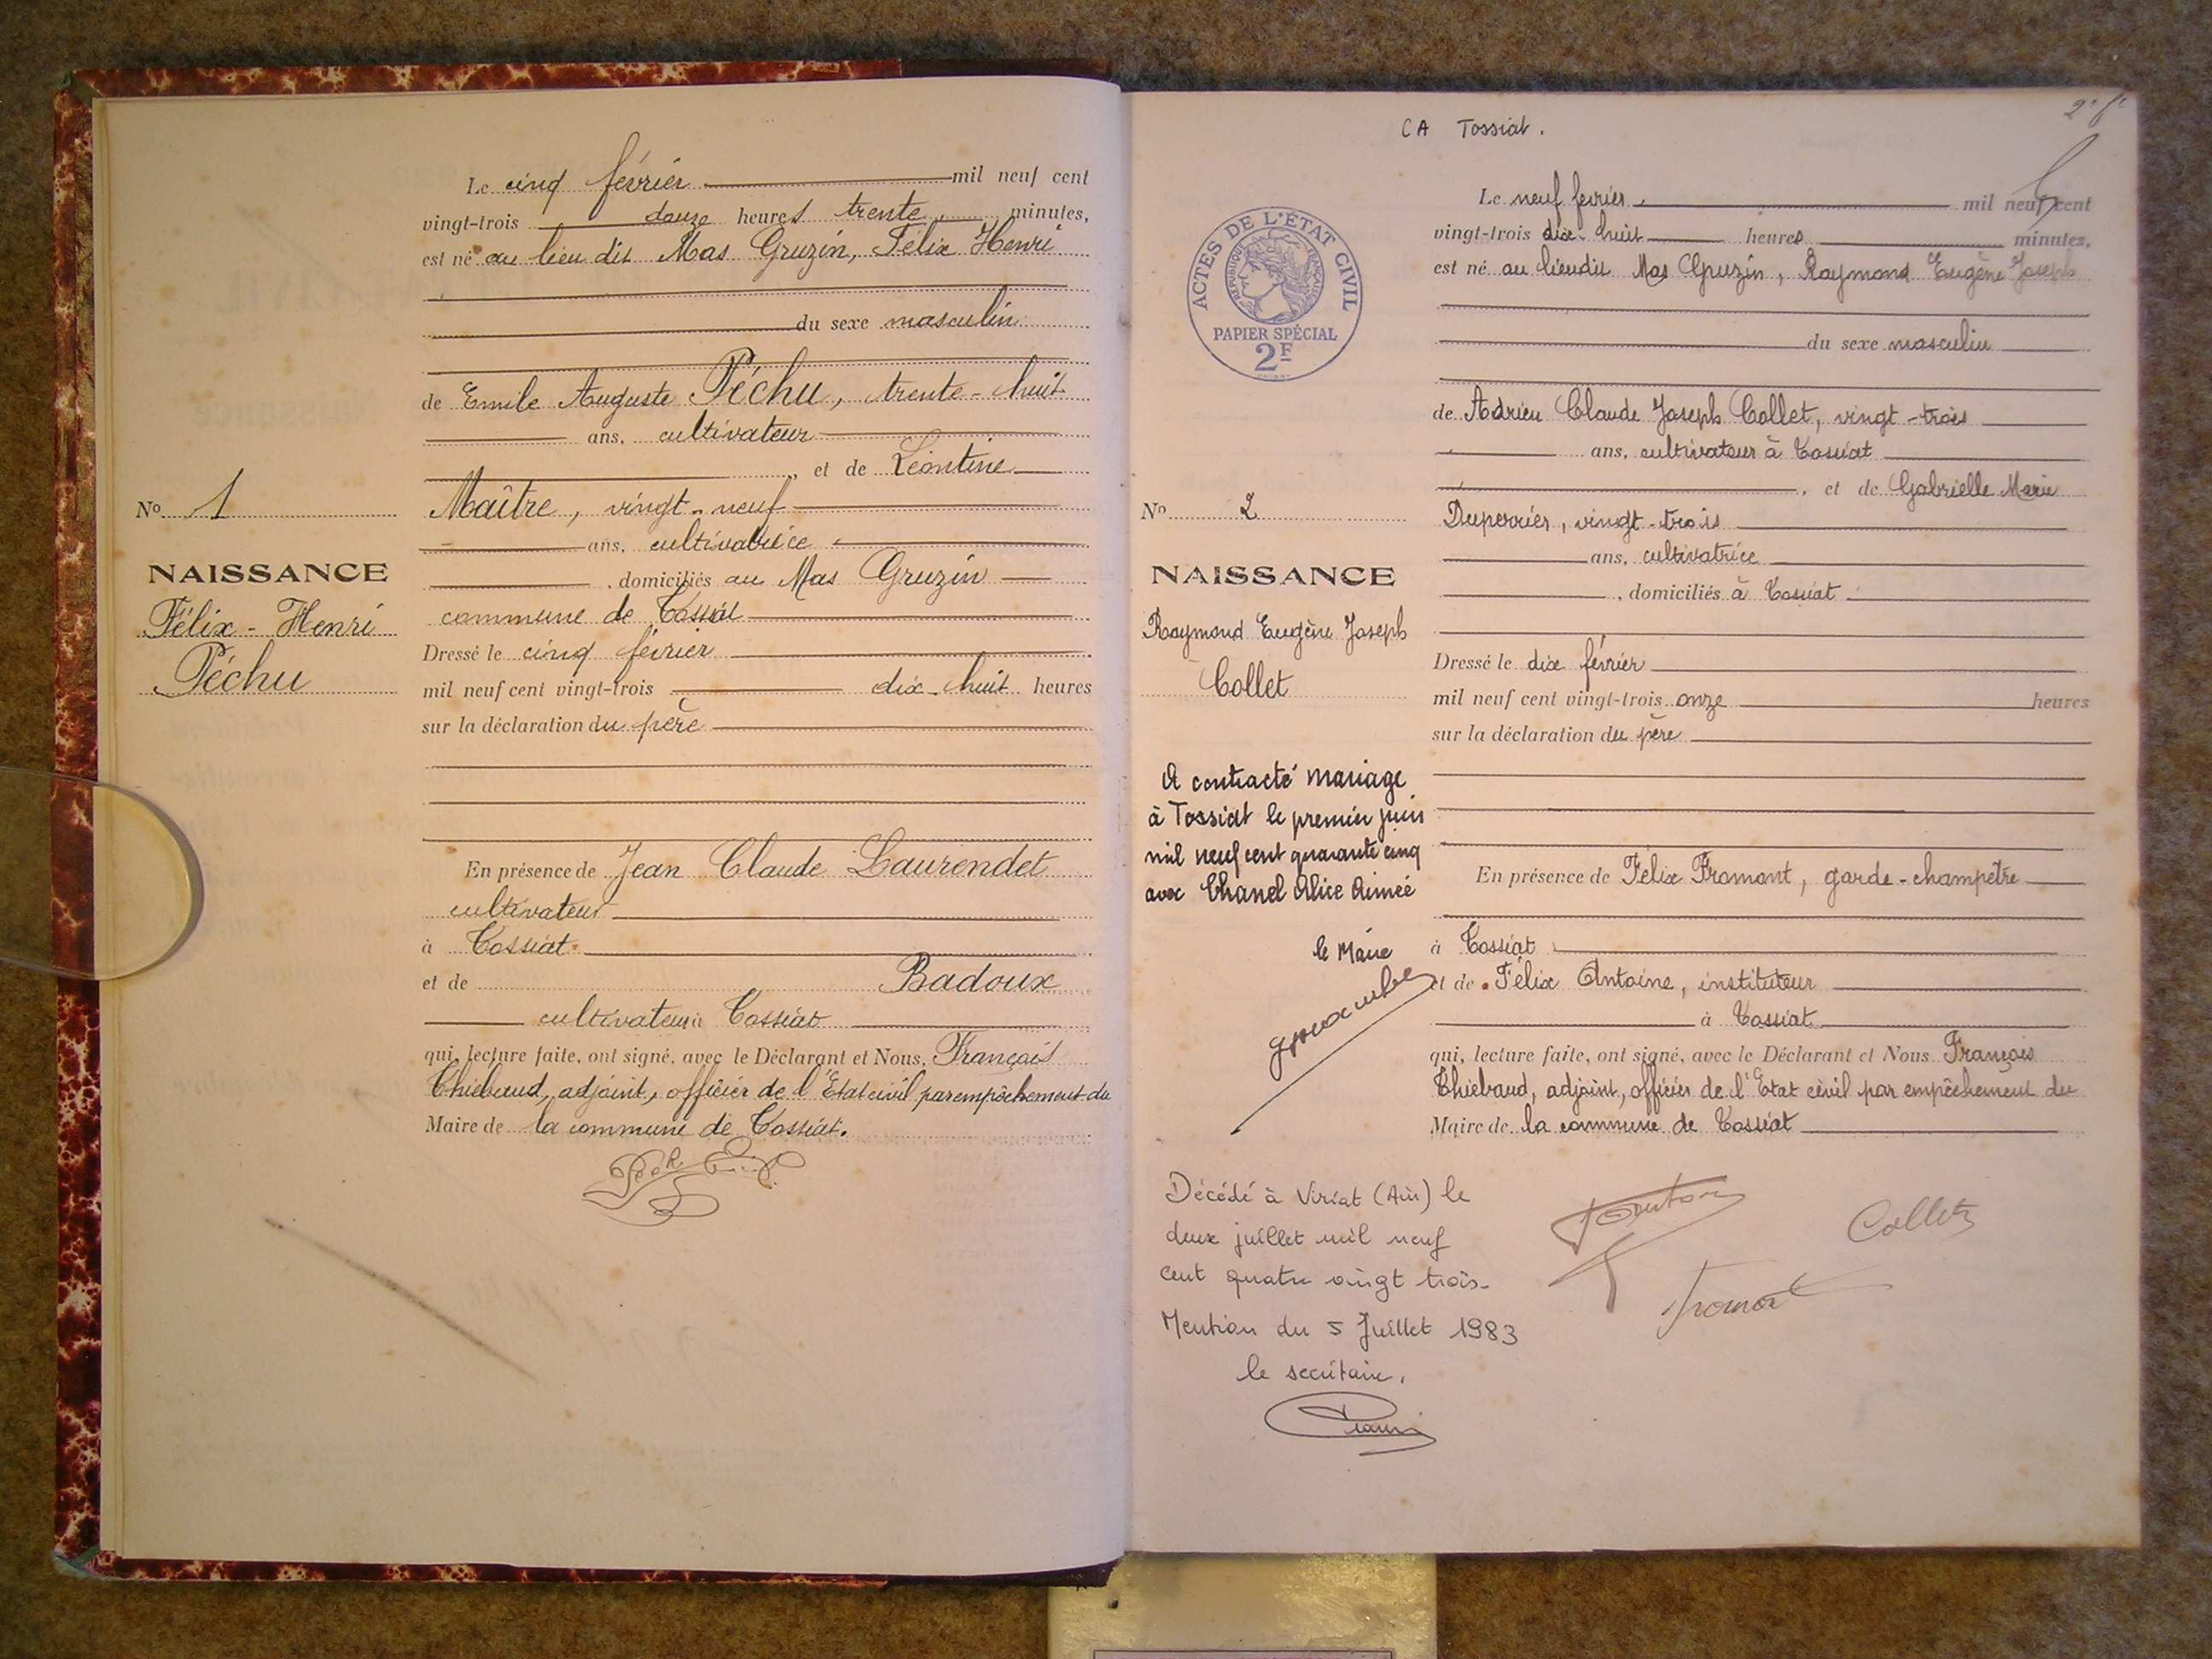 Le cinq février mil neuf cent
vingt-trois douze heures trente minutes,
est né au lieu dit Mas Gruzin, Félix Henri
du sexe masculin
de Emile Auguste Péchu, trente-huit
ans, cultivateur
, et de Léontine
Maître, vingt-neuf
ans, cultivatrice
, domiciliés au Mas Gruzin
commune de Tossiat
Dressé le cinq février
mil neuf cent vingt-trois dix-huit heures
sur la déclaration du père
En présence de Jean Claude Laurendet
cultivateur
à Tossiat
et de Badoux
cultivateur à Tossiat
qui, lecture faite, ont signé, avec le Déclarant et Nous, François
Thiébaud, adjoint, officier de l'Etat civil par empêchement du
Maire de la commune de Tossiat.
No 1
NAISSANCE
Félix-Henri
Péchu
CA Tossiat.
2e f
ACTES DE L'ÉTAT CIVIL
RÉPUBLIQUE FRANÇAISE
PAPIER SPÉCIAL
2F
Le neuf février, mil neuf cent
vingt-trois dix-huit heures minutes,
est né au lieudit Mas Gruzin, Raymond Eugène Joseph
du sexe masculin
de Adrien Claude Joseph Collet, vingt-trois
ans, cultivateur à Tossiat
, et de Gabrielle Marie
Duperrier, vingt-trois
ans, cultivatrice
, domiciliés à Tossiat
Dressé le dix février
mil neuf cent vingt-trois onze heures
sur la déclaration du père
En présence de Félix Fromont, garde-champêtre
à Tossiat
et de Félix Antoine, instituteur
à Tossiat
qui, lecture faite, ont signé, avec le Déclarant et Nous François
Thiébaud, adjoint, officier de l'Etat civil par empêchement du
Maire de la commune de Tossiat
Collet
Fromont
No 2
NAISSANCE
Raymond Eugène Joseph
Collet
A contracté mariage
à Tossiat le premier juin
mil neuf cent quarante cinq
avec Chanel Alice Aimée
le Maire
Décédé à Viriat (Ain) le
deux juillet mil neuf
cent quatre vingt trois-
Mention du 5 Juillet 1983
le secrétaire,